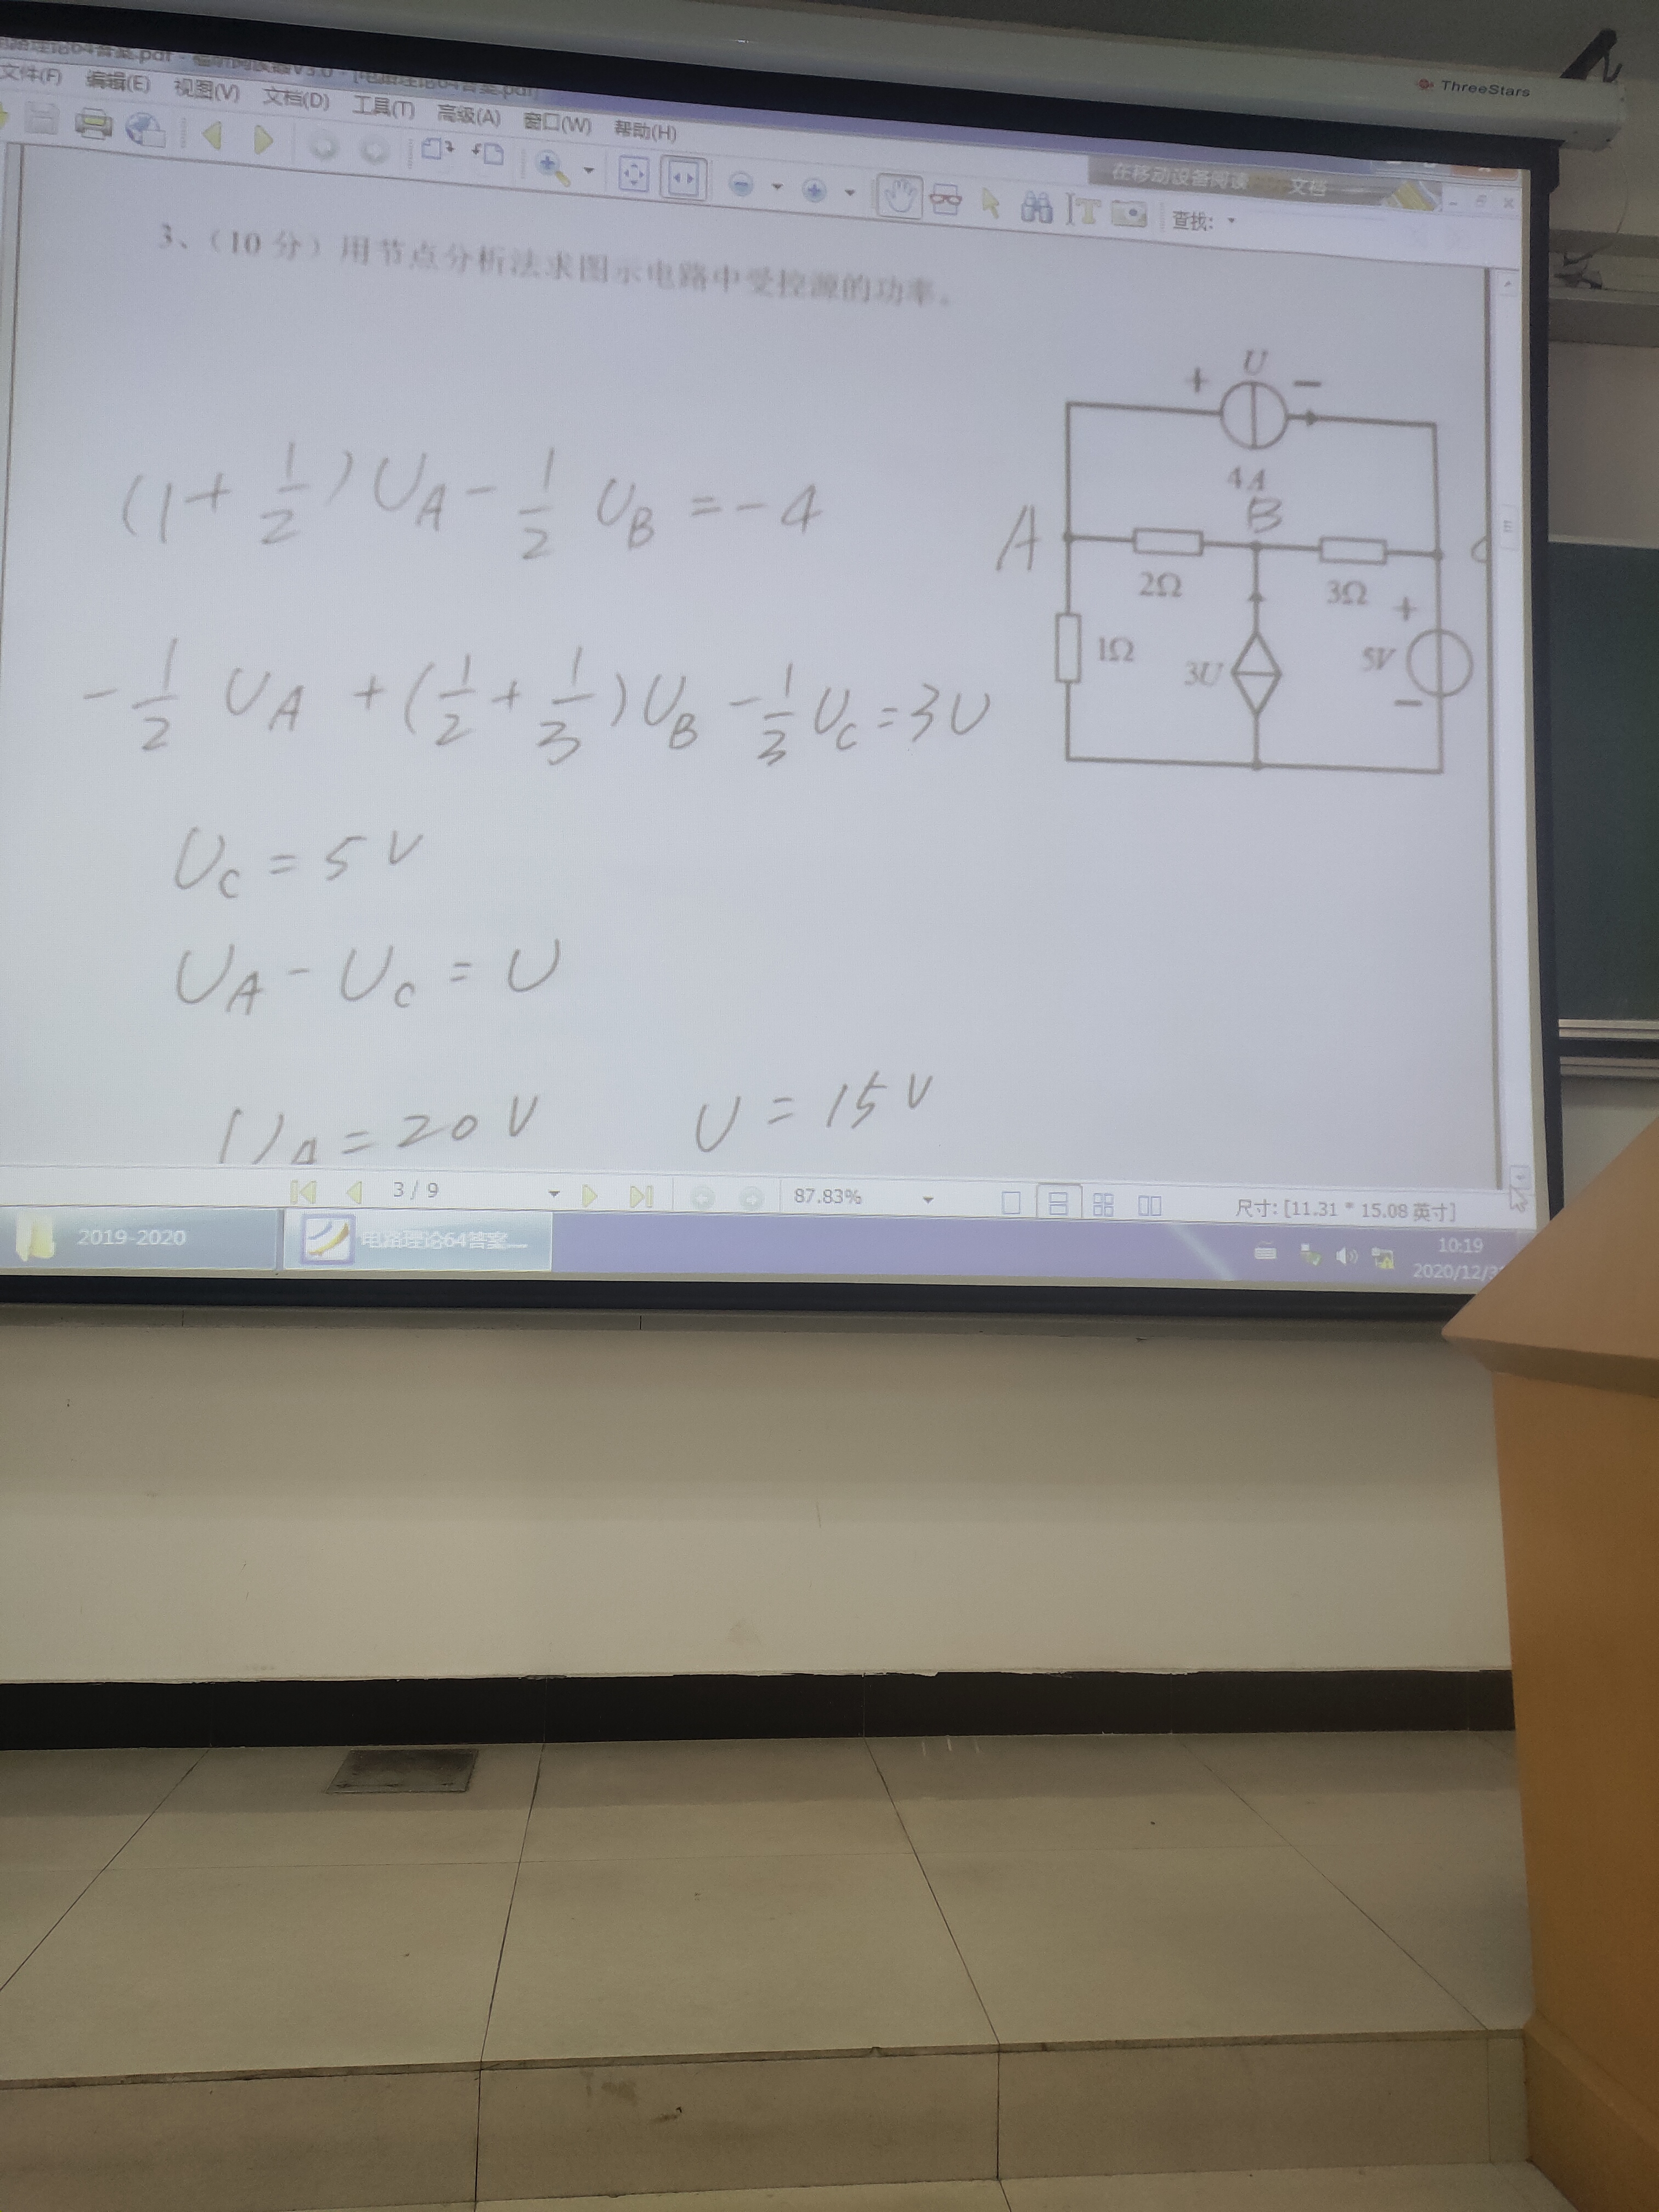 ThreeStars
电路理论64答案.pdf - 福昕阅读器V3.0 - [电路理论64答案.pdf]
文件(F) 编辑(E) 视图(V) 文档(D) 工具(T) 高级(A) 窗口(W) 帮助(H)
在移动设备阅读 文档
查找:
3、（10 分）用节点分析法求图示电路中受控源的功率。
+ U −
4A
A B
2Ω 3Ω
1Ω 3U + 5V −
(1+ 1/2) UA − 1/2 UB = −4
−1/2 UA + (1/2 + 1/3) UB − 1/3 UC = 3U
UC = 5V
UA − UC = U
UA = 20V U = 15V
3 / 9 87.83% 尺寸: [11.31 * 15.08 英寸]
2019-2020 电路理论64答案...
10:19
2020/12/3